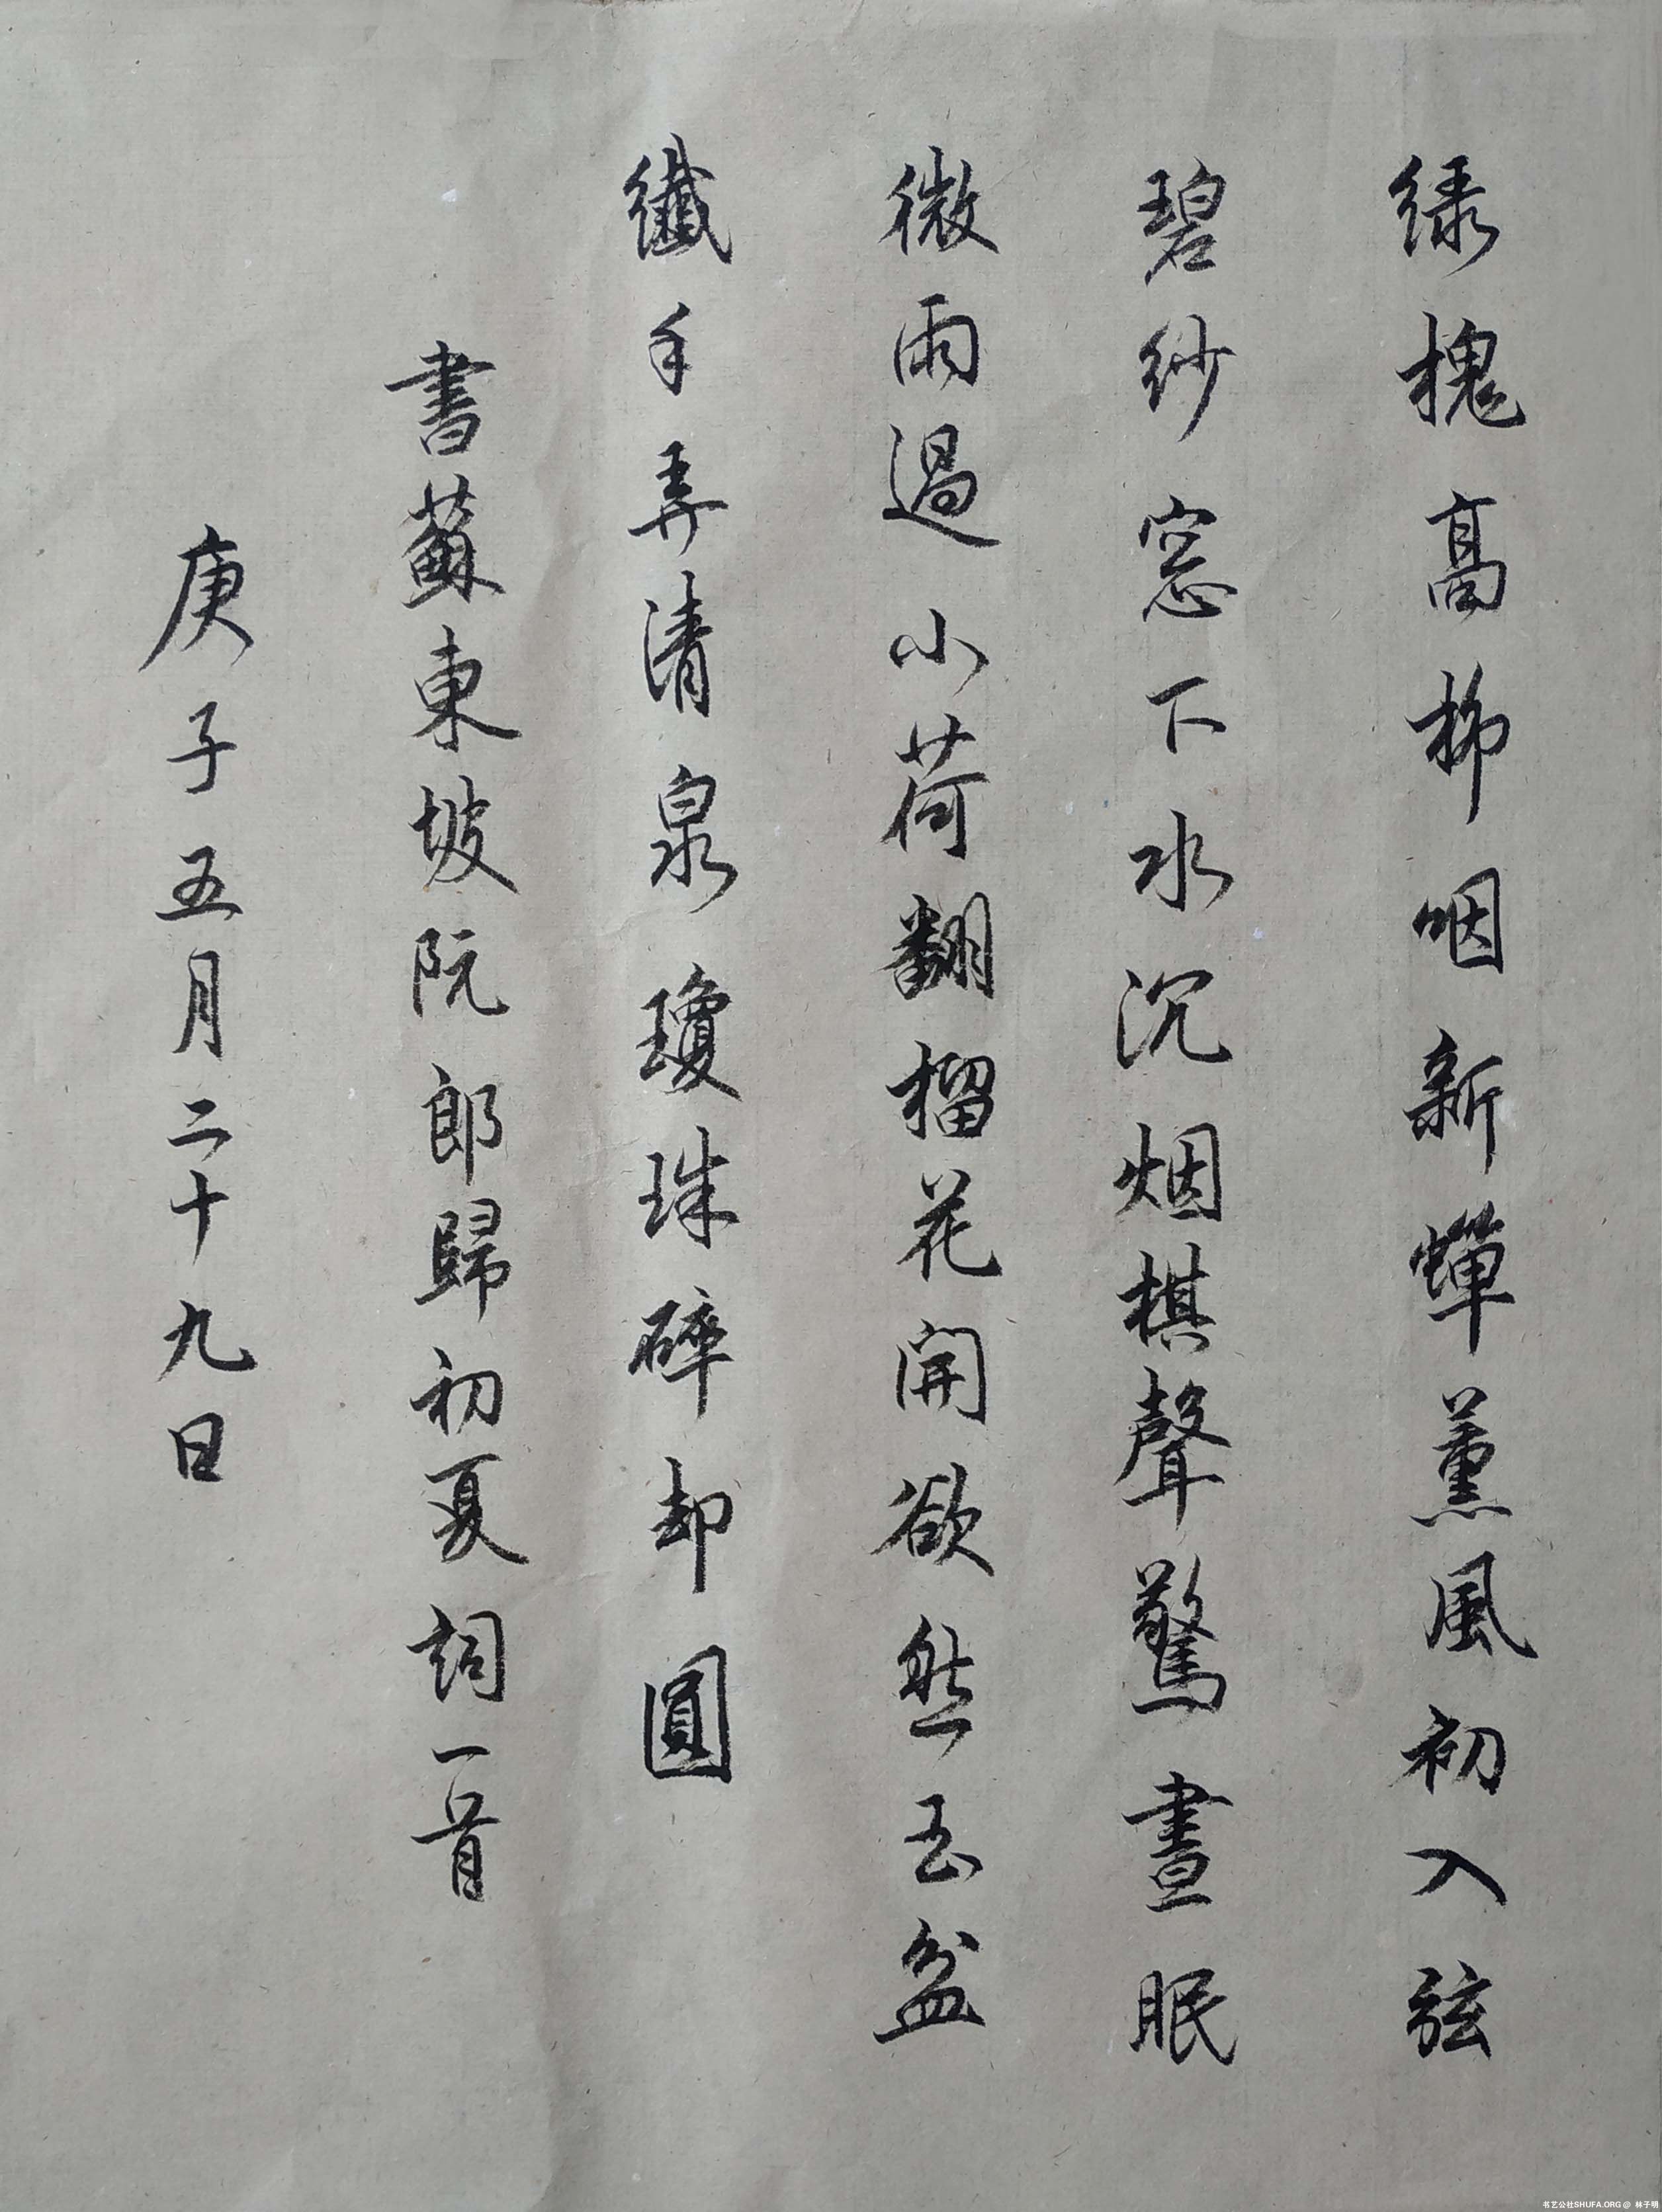 绿槐高柳咽新蟬薰風初入弦
碧紗窓下水沉烟棋聲驚晝眠
微雨過小荷翻榴花開欲然玉盆
纖手弄清泉瓊珠碎却圓
書蘇東坡阮郎歸初夏詞一首
庚子五月二十九日
书艺公社SHUFA.ORG @ 林子明